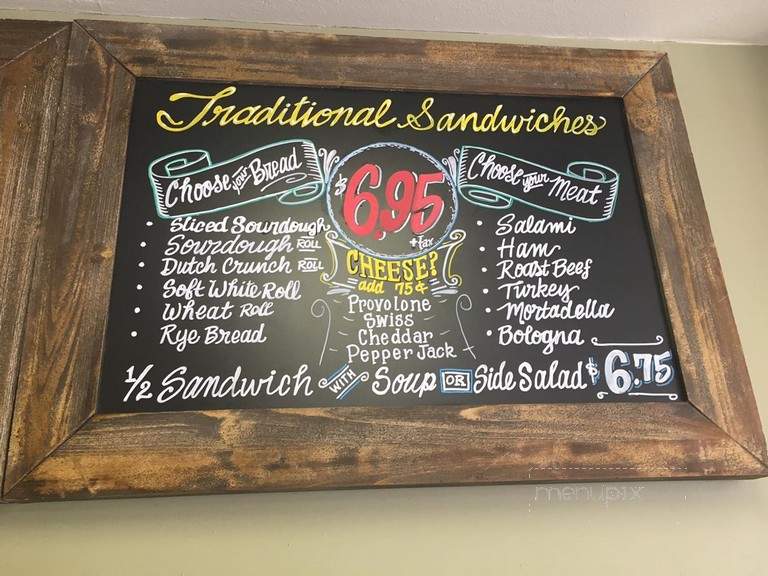 Traditional Sandwiches
Choose your Bread
• Sliced Sourdough
• Sourdough ROLL
• Dutch Crunch ROLL
• Soft White Roll
• Wheat Roll
• Rye Bread
$6.95
+tax
CHEESE?
add 75¢
Provolone
Swiss
Cheddar
Pepper Jack
Choose your Meat
• Salami
• Ham
• Roast Beef
• Turkey
• Mortadella
• Bologna
1/2 Sandwich WITH Soup OR Side Salad $6.75
menupix